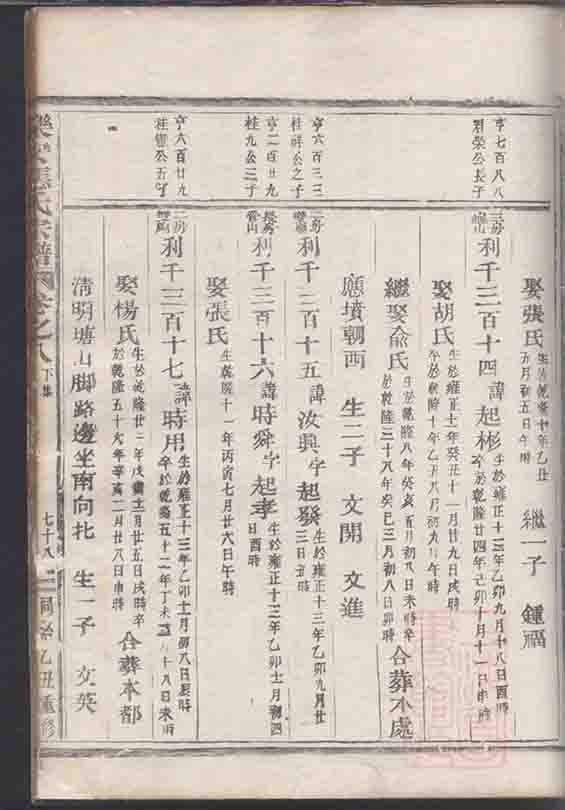 娶張氏 生於乾隆十年乙丑五月初五日午時 繼一子 鍾福
亨七百八八
公長子
三房
利千三百十四 諱起彬 生於雍正十三年乙卯九月十八日酉時 卒於乾隆廿四年己卯十月十一日申時
娶胡氏 生於雍正十一年癸丑十一月廿九日戌時 卒於乾隆十年乙丑八月初九日午時
繼娶俞氏 生於乾隆八年癸亥五月初八日未時卒於乾隆三十八年癸巳三月初八日卯時 合葬本處
應墳朝西 生二子 文開 文進
亨六百三三
桂祥公之子
利千三百十五 諱汝興 字起發 生於雍正十三年乙卯九月廿三日丑時
亨二百廿九
桂九公三子
長房
利千三百十六 諱時舜 字起孝 生於雍正十三年乙卯十一月初四日酉時
娶張氏 生乾隆十一年丙寅七月廿六日午時
亨六百廿九
公五子
二房
利千三百十七 諱時用 生於雍正十三年乙卯十月初八日辰時 卒於乾隆五十二年丁未 十八日未時
娶楊氏 生於乾隆廿三年戊寅十月廿五日戌時卒於乾隆五十六年辛亥二月廿八日申時 合葬本都
清明塘山脚路邊坐南向北 生一子 文英
張氏宗譜 卷之八 下集 七十八 同治乙丑重修